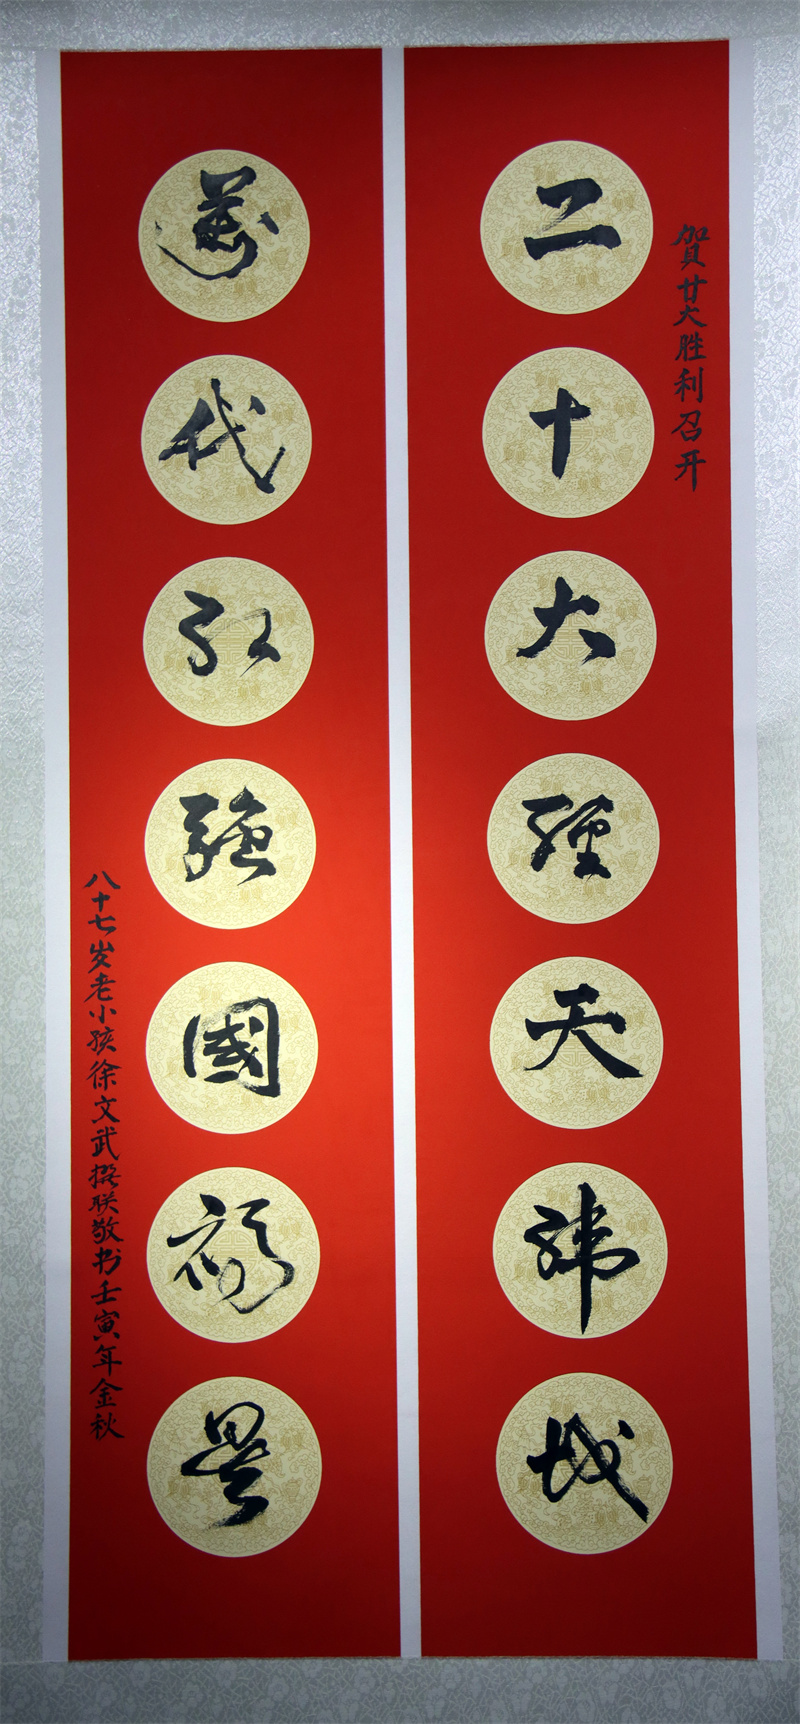 賀廿大胜利召开
二十大經天緯
萬代強國景
八十七岁老小孩徐文武撰联敬书壬寅年金秋